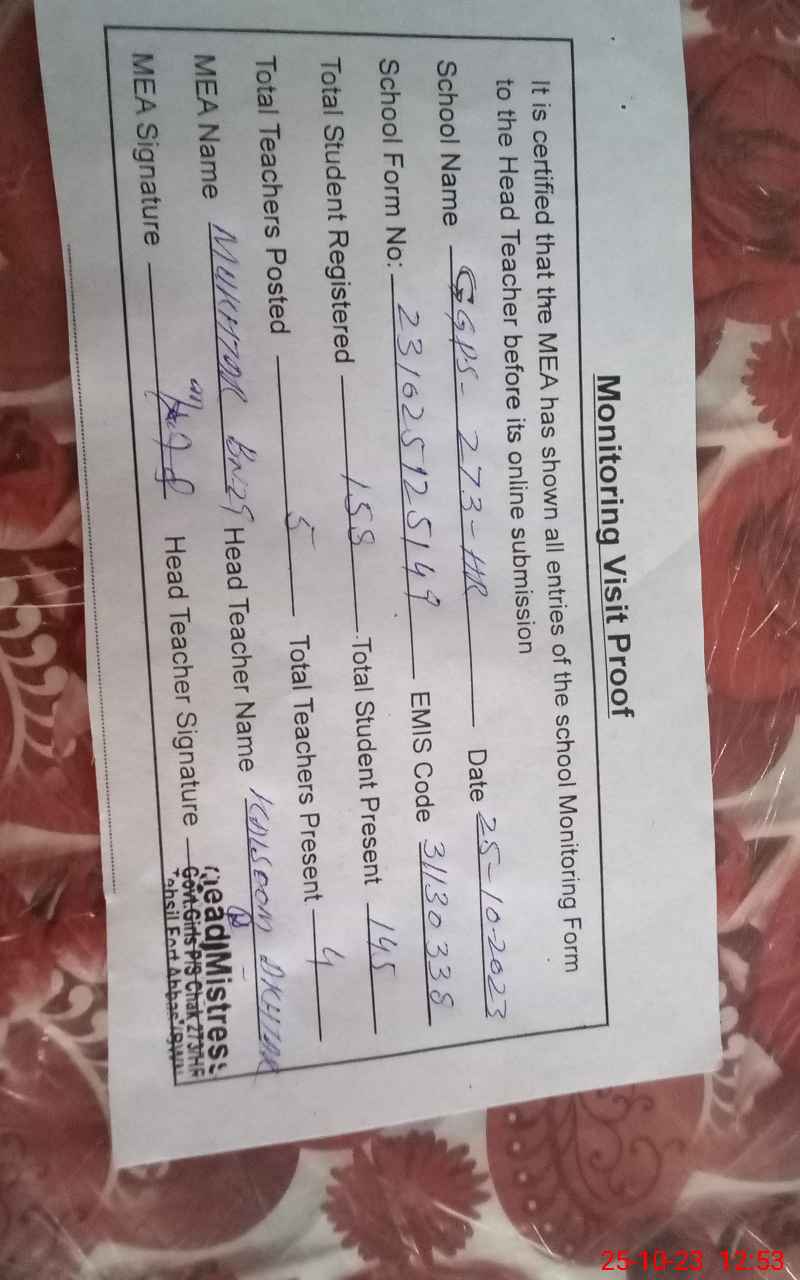 Monitoring Visit Proof
It is certified that the MEA has shown all entries of the school Monitoring Form
to the Head Teacher before its online submission
School Name GGPS- 273-HR Date 25-10-2023
School Form No: 231625125149 EMIS Code 31130338
Total Student Registered 155 Total Student Present 145
Total Teachers Posted 5 Total Teachers Present 4
MEA Name MUKHTAR Head Teacher Name KALSOOM AKHTAR
MEA Signature Head Teacher Signature
Head Mistress
Govt.Girls P/S Chak 273/HR
Tehsil Fort Abbas
25-10-23 12:53